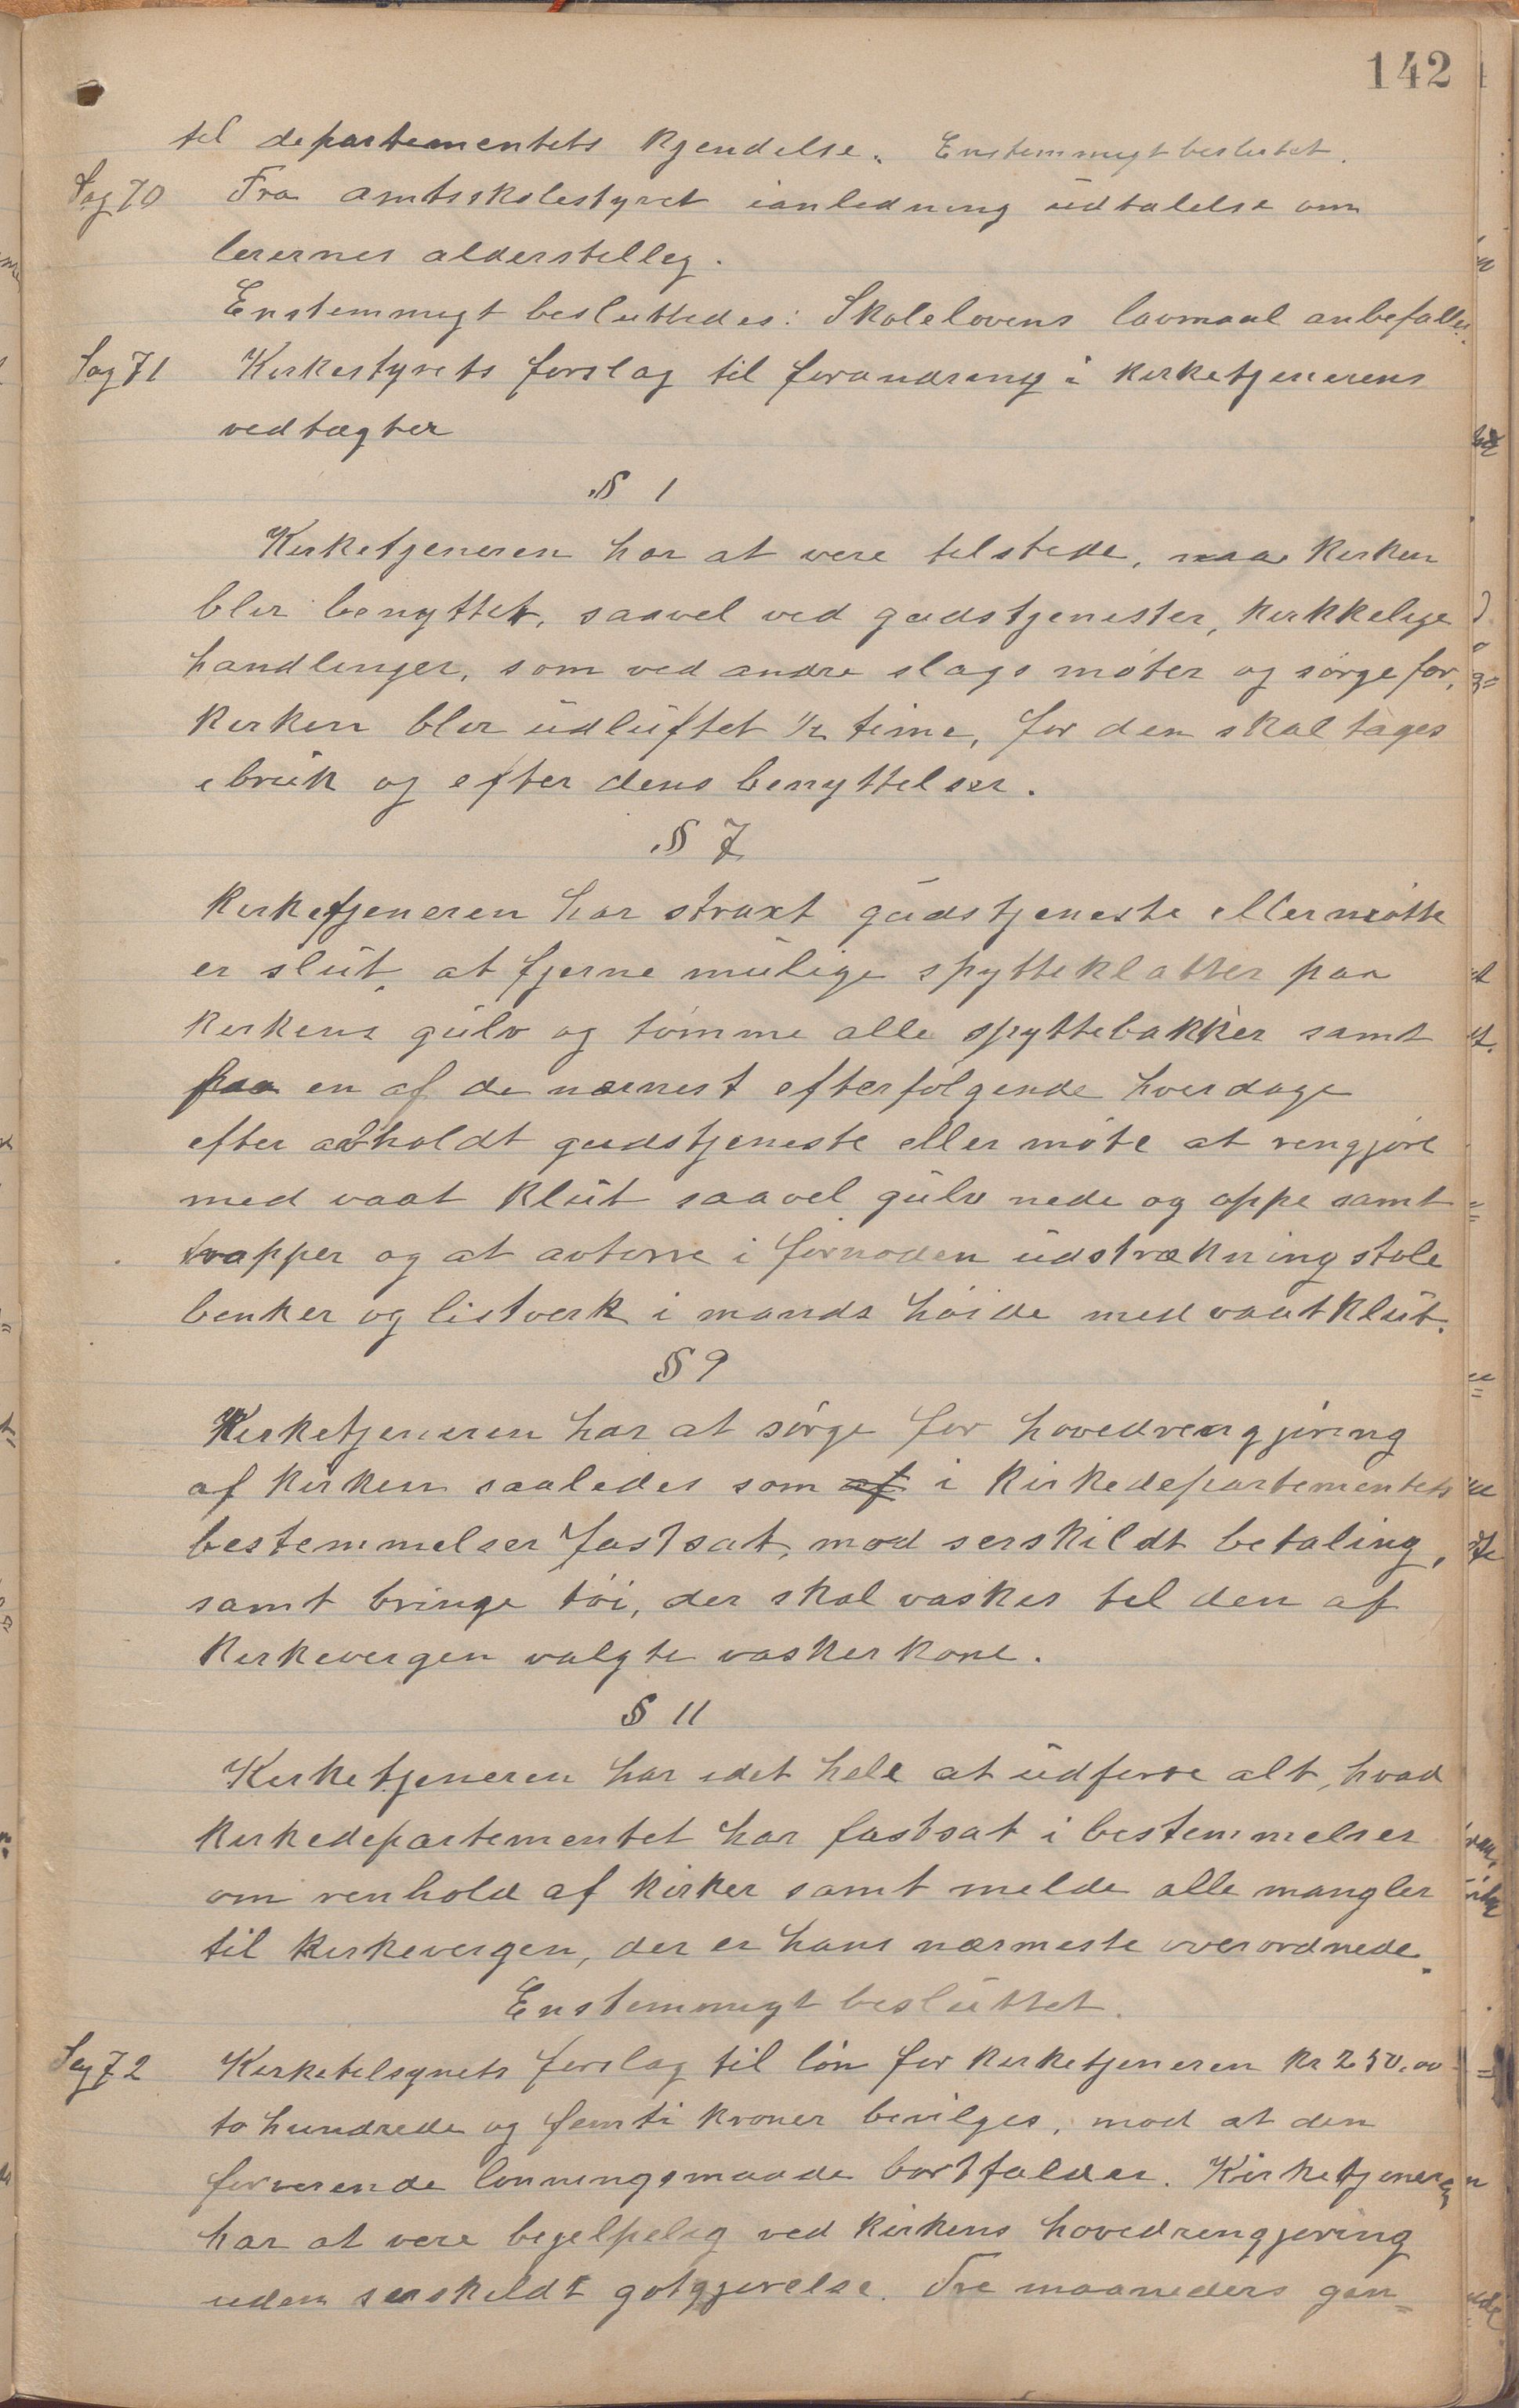 142
til departementets kjendelse. Enstemmigt besluttet.
Sag 70 Fra amtsskolestyret ianledning üdtalelse om
lerernes alderstilleg.
Enstemmigt besluttedes: Skolelovens lavmaal anbefalles.
Sag 71 Kirkestyrets forslag til forandring i kirketjenerens
vedtægter
§ 1
Kirketjeneren har at vere tilstede, naar kirken
blir benyttet, saavel ved gudstjenister, kirkkelige
handlinger, som ved andre slags móter og sórge for,
kirken blir üdlüftet ½ time, for den skal tages
ibrük og efter dens benyttelser.
§ 7
Kirketjeneren har straxt güdstjeneste eller mótte
er slüt, at fjerne mülige spytteklatter paa
kirkens gülv og tómme alle spyttebakker samt
paa en af de nærnest efterfólgende hverdage
efter avholdt gudstjeneste eller móte at rengjóre
med vaat klüt saavel gülv nede og oppe samt
trapper og at avtorre i fornoden üdstrækning stole
benker og listverk i mands hóide med vaat klüt.
§ 9
Kirketjeneren har at sórge for hovedrengjóring
af kirken saaledes som af i Kirkedepartementets
bestemmelser fastsat, mod serskildt betaling,
samt bringe tói, der skal vaskes til den af
Kirkevergen valgte vaskerkone.
§ 11
Kirketjeneren har idet hele at üdforre alt, hvad
Kirkedepartementet har fastsat i bestemmelser
om renhold af kirker samt melde alle mangler
til Kirkevergen, der er hans nærmeste overordnede.
Enstemmigt beslüttet.
Sag 72 Kirketilsynets forslag til lón for kirketjeneren Kr 250,00
to hundrede og femti kroner bevilges, mod at den
forverende lonningsmaade bortfalder. Kirketjeneren
har at vere behjelpelig ved kirkens hovedrengjoring
uden serskildt gotgjorelse. Tre maaneders gjen=